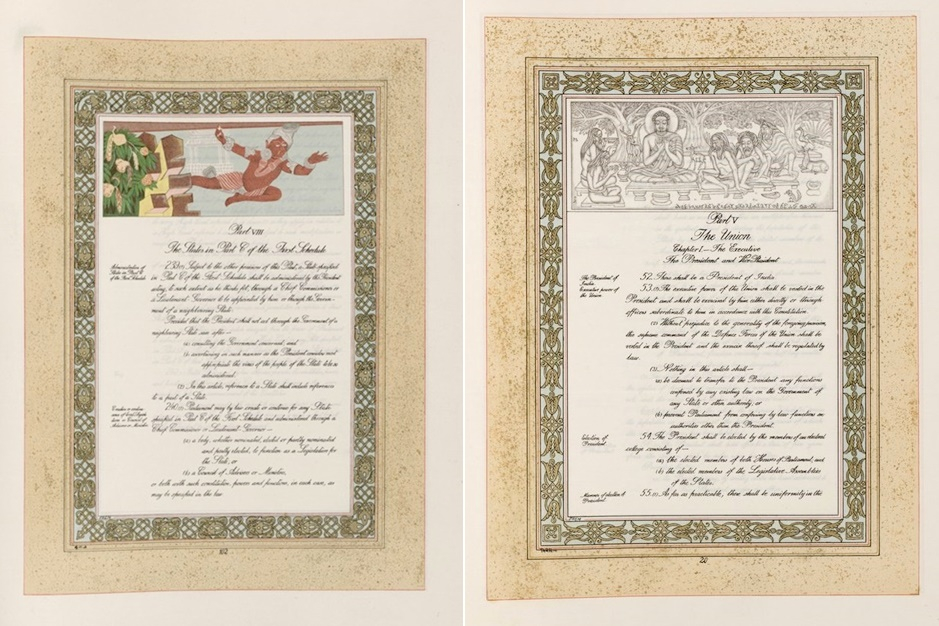 Part VIII
The States in Part C of the First Schedule
Administration of
States in Part C
of the First Schedule
239.(1) Subject to the other provisions of this Part, a State specified
in Part C of the First Schedule shall be administered by the President
acting, to such extent as he thinks fit, through a Chief Commissioner or
a Lieutenant-Governor to be appointed by him or through the Govern-
ment of a neighbouring State:
Provided that the President shall not act through the Government of a
neighbouring State save after—
(a) consulting the Government concerned; and
(b) ascertaining in such manner as the President considers most
appropriate the views of the people of the State to be so
administered.
(2) In this article, references to a State shall include references
to a part of a State.
240.(1) Parliament may by law create or continue for any State
specified in Part C of the First Schedule and administered through a
Chief Commissioner or Lieutenant-Governor—
(a) a body, whether nominated, elected or partly nominated
and partly elected, to function as a Legislature for
the State; or
(b) a Council of Advisers or Ministers,
or both with such constitution, powers and functions, in each case, as
may be specified in the law.
102
Part V
The Union
Chapter I.—The Executive
The President and Vice-President
The President of
India.
52. There shall be a President of India.
Executive power of
the Union.
53.(1) The executive power of the Union shall be vested in the
President and shall be exercised by him either directly or through
officers subordinate to him in accordance with this Constitution.
(2) Without prejudice to the generality of the foregoing provision,
the supreme command of the Defence Forces of the Union shall be
vested in the President and the exercise thereof shall be regulated by
law.
(3) Nothing in this article shall—
(a) be deemed to transfer to the President any functions
conferred by any existing law on the Government of
any State or other authority; or
(b) prevent Parliament from conferring by law functions on
authorities other than the President.
Election of
President.
54. The President shall be elected by the members of an electoral
college consisting of—
(a) the elected members of both Houses of Parliament; and
(b) the elected members of the Legislative Assemblies
of the States.
Manner of election of
President.
55.(1) As far as practicable, there shall be uniformity in the
20